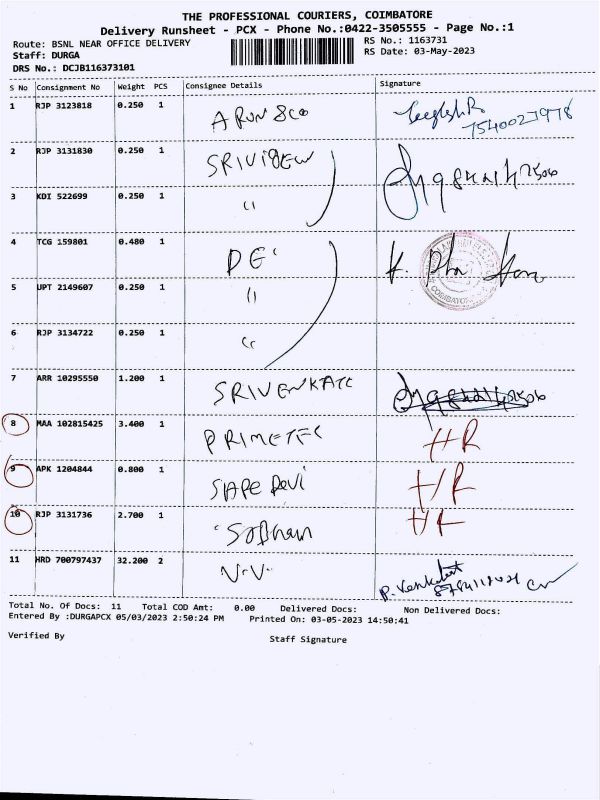 THE PROFESSIONAL COURIERS, COIMBATORE
Delivery Runsheet - PCX - Phone No.:0422-3505555 - Page No.:1
Route: BSNL NEAR OFFICE DELIVERY RS No.: 1163731
Staff: DURGA RS Date: 03-May-2023
DRS No.: DCJB116373101
S No Consignment No Weight PCS Consignee Details Signature
1 RJP 3123818 0.250 1 ARUN &CO 7540027978
2 RJP 3131830 0.250 1
3 KDI 522699 0.250 1 "
4 TCG 159801 0.480 1
COIMBATORE
5 UPT 2149607 0.250 1 "
6 RJP 3134722 0.250 1 "
7 ARR 10295550 1.200 1 SRIVENKATE
8 MAA 102815425 3.400 1 PRIMETEC HR
9 APK 1204844 0.800 1 HR
10 RJP 3131736 2.700 1
11 HRD 700797437 32.200 2 N.V. P. Venkatest
Total No. Of Docs: 11 Total COD Amt: 0.00 Delivered Docs: Non Delivered Docs:
Entered By :DURGAPCX 05/03/2023 2:50:24 PM Printed On: 03-05-2023 14:50:41
Verified By Staff Signature